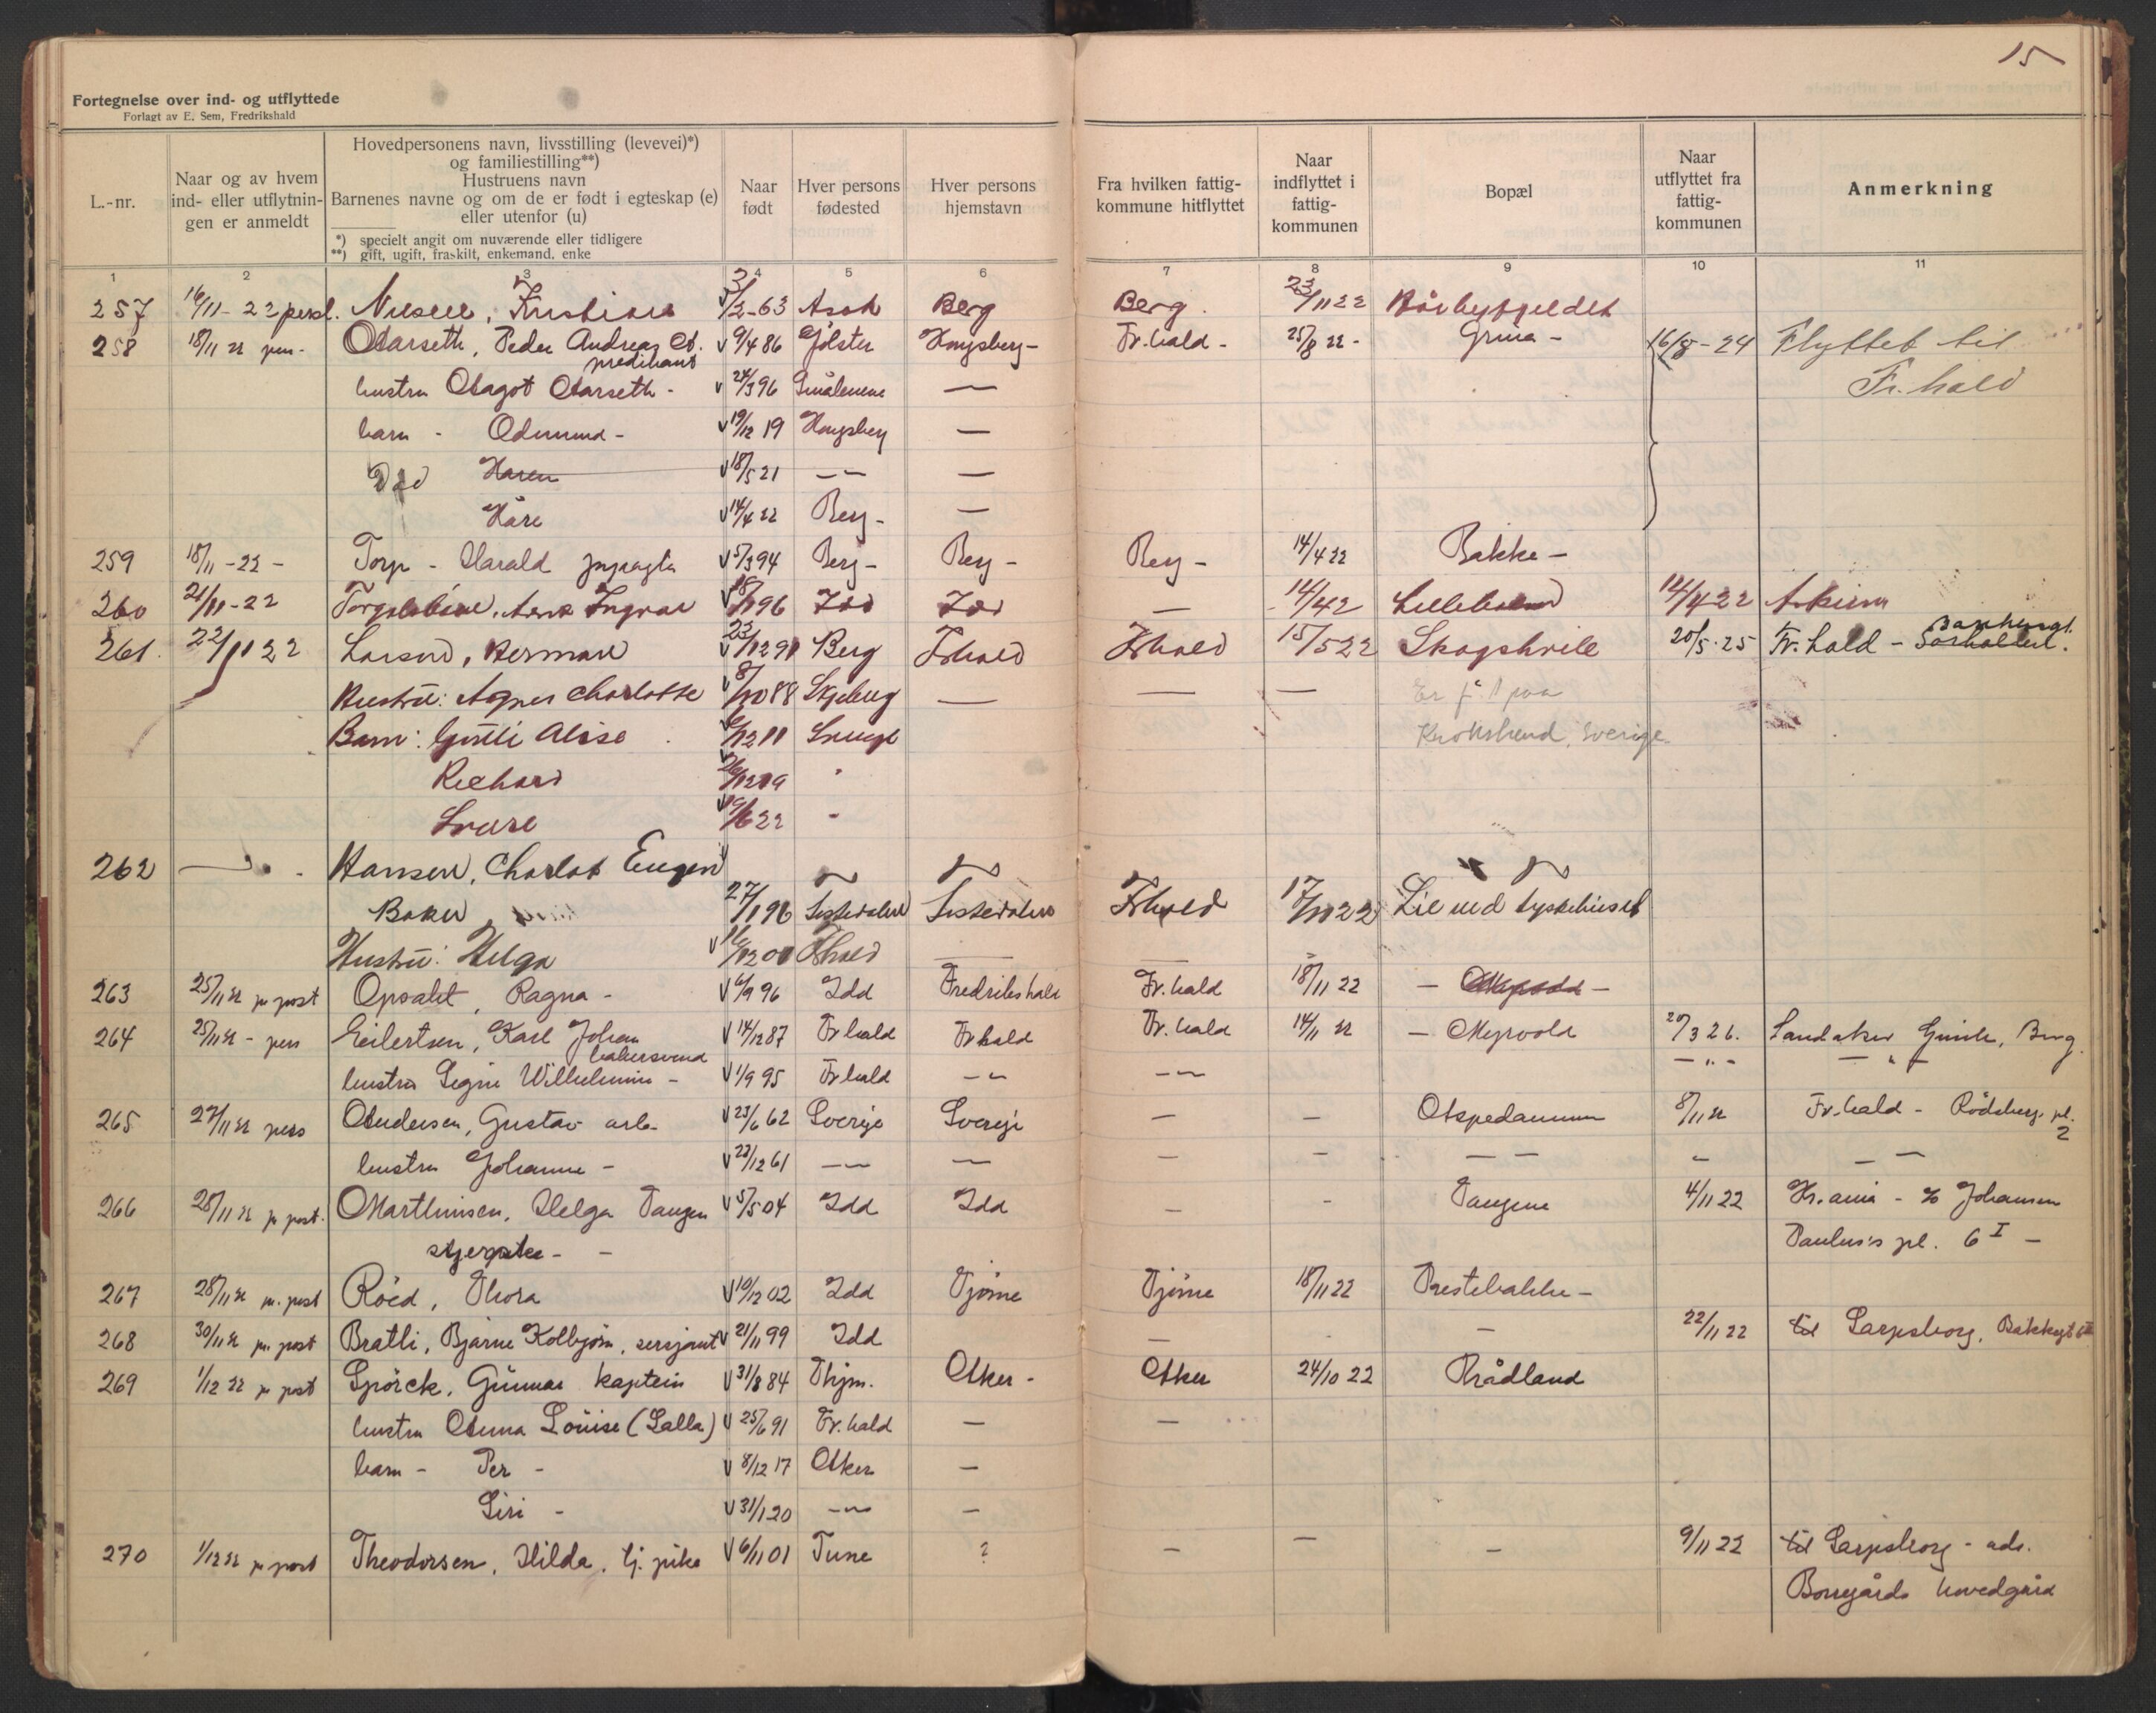 15
Fortegnelse over ind- og utflyttede
Forlagt av E. Sem, Fredrikshald
L.-nr.
Naar og av hvem ind- eller utflytnin-gen er anmeldt
Hovedpersonens navn, livsstilling (levevei)*)
og familiestilling**)
Hustruens navn
Barnenes navne og om de er født i egteskap (e)
eller utenfor (u)
*) specielt angit om nuværende eller tidligere
**) gift, ugift, fraskilt, enkemand, enke
Naar født
Hver persons fødested
Hver persons hjemstavn
Fra hvilken fattig-kommune hitflyttet
Naar indflyttet i fattig-kommunen
Bopæl
Naar utflyttet fra fattig-kommunen
Anmerkning
1 2 3 4 5 6 7 8 9 10 11
257 16/11-22 persl. Nilsen, Kristian 3/2-63 Berg Berg 23/11 22
258 18/11 22 pers- Aarseth, Peder Andreas A. 9/4 86 Jølster Kongsberg- Fr.hald- 25/8 22- Grina- 16/8-24 Flyttet til
predikant
hustru Aagot Aarseth- 24/3 96 Smålenene — Fr. hald
barn - Odmund- 19/12 19 Kongsberg —
Død Karen 18/5 21 —"— —
Kåre 14/4 22 Berg- —
259 18/11-22- Torp - Harald 5/3 94 Berg- Berg- Berg- 14/4 22 Bakke-
260 21/11-22 Ingvar 96 Idd Idd — 14/4 2 14/4 22 Askim
261. 22/11 22 Larsen, Herman 23/12 91 Berg Frhald Frhald 15/5 22 Skogshvile 20/5-25 Fr. hald -
Hustru: Agnes Charlotte 8/10 88 Skjeberg — — — Er
Barn: Alise 12 11 Krokstrand, Sverige
Richard 12 19 "
6 22 "
262 —"— Hansen, Charlot Eugen
Baker 27/1 96 Tistedalen Tistedalen Frhald 17/10 22 Lie ved tyskehuset
Hustru: Helga 16/12 00 Frhald — —
263 25/11 22 pr post Opsahl, Ragna- 6/9 96 Idd Fredrikshald Fr.hald 18/11 22 -
264 25/11 22 - pers Eilertsen, Karl Johan 14/12 87 Fr hald Fr hald Fr. hald 14/11 22 - Myrvold 20/3 26. Landaker Berg.
bakersvend
hustru Signe Wilhelmine- 1/9 95 Fr hald —"— —"— —"— —"—
265 27/11 22 pers Andersen, Gustav arb- 23/6 62 Sverige Sverige — — Aspedammen 8/11 22 Fr.hald - Rødsberg pl.
2
hustru Johanne- 23/12 61 —"— — — — — — — — —
266 28/11 22 pr post. Marthinsen, Helga Tangen 5/5 04 Idd Idd — - Tangene 4/11 22 Kr.ania - % Johansen
Paulus's pl. 6 I -
267 28/11 22 pr. post Röed, Thora 10/12 02 Idd Tjöme Tjöme 18/11 22 Prestebakke-
268 30/11 22 pr. post Bratli, Bjarne Kolbjörn, sersjant 21/11 99 Idd — - — 22/11 22 til Sarpsborg,
269 1/12 22 pr post Spörck, Gunnar kaptein 31/8 84 Thjm. Aker- Aker 24/10 22 Prådland
hustru Anna Louise (Lalla) 25/6 91 Fr.hald — —
barn - Per - 8/12 17 Aker —
Siri - 31/1 20 —"— —
270 1/12 22 pr post Theodorsen, Hilda, tj. pike 6/11 01 Tune ? — — — 9/11 22 til Sarpsborg - adr.
Borregårds hovedgård